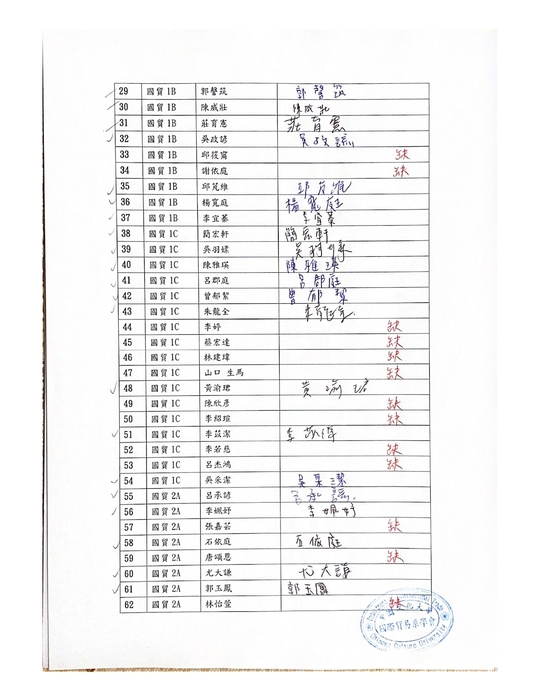 29 國貿 1B 郭馨筑 郭馨筑
30 國貿 1B 陳威壯 陳威壯
31 國貿 1B 莊育憲 莊育憲
32 國貿 1B 吳政諺 吳政諺
33 國貿 1B 邱筱甯 缺
34 國貿 1B 謝依庭 缺
35 國貿 1B 邱芃維 邱芃維
36 國貿 1B 楊寬庭 楊寬庭
37 國貿 1B 李宜蓁 李宜蓁
38 國貿 1C 簡宏軒 簡宏軒
39 國貿 1C 吳羽
40 國貿 1C 陳雅瑛 陳雅瑛
41 國貿 1C 呂郡庭 呂郡庭
42 國貿 1C 曾郁絜 曾郁絜
43 國貿 1C 朱龍金
44 國貿 1C 李婷 缺
45 國貿 1C 蔡宏達 缺
46 國貿 1C 林建瑋 缺
47 國貿 1C 山口 生馬 缺
48 國貿 1C 黃渝珺 黃渝珺
49 國貿 1C 陳欣彥 缺
50 國貿 1C 李紹瑄 缺
51 國貿 1C 李苡潔
52 國貿 1C 李若慈 缺
53 國貿 1C 呂杰鴻 缺
54 國貿 1C 吳采潔 吳采潔
55 國貿 2A 呂承諺 呂承諺
56 國貿 2A 李姵妤 李姵妤
57 國貿 2A 張嘉芸 缺
58 國貿 2A 石依庭 石依庭
59 國貿 2A 唐頌恩 缺
60 國貿 2A 尤大謙 尤大謙
61 國貿 2A 郭玉鳳 郭玉鳳
62 國貿 2A 林怡萱 缺
國際貿易系學會
Chinese Culture University